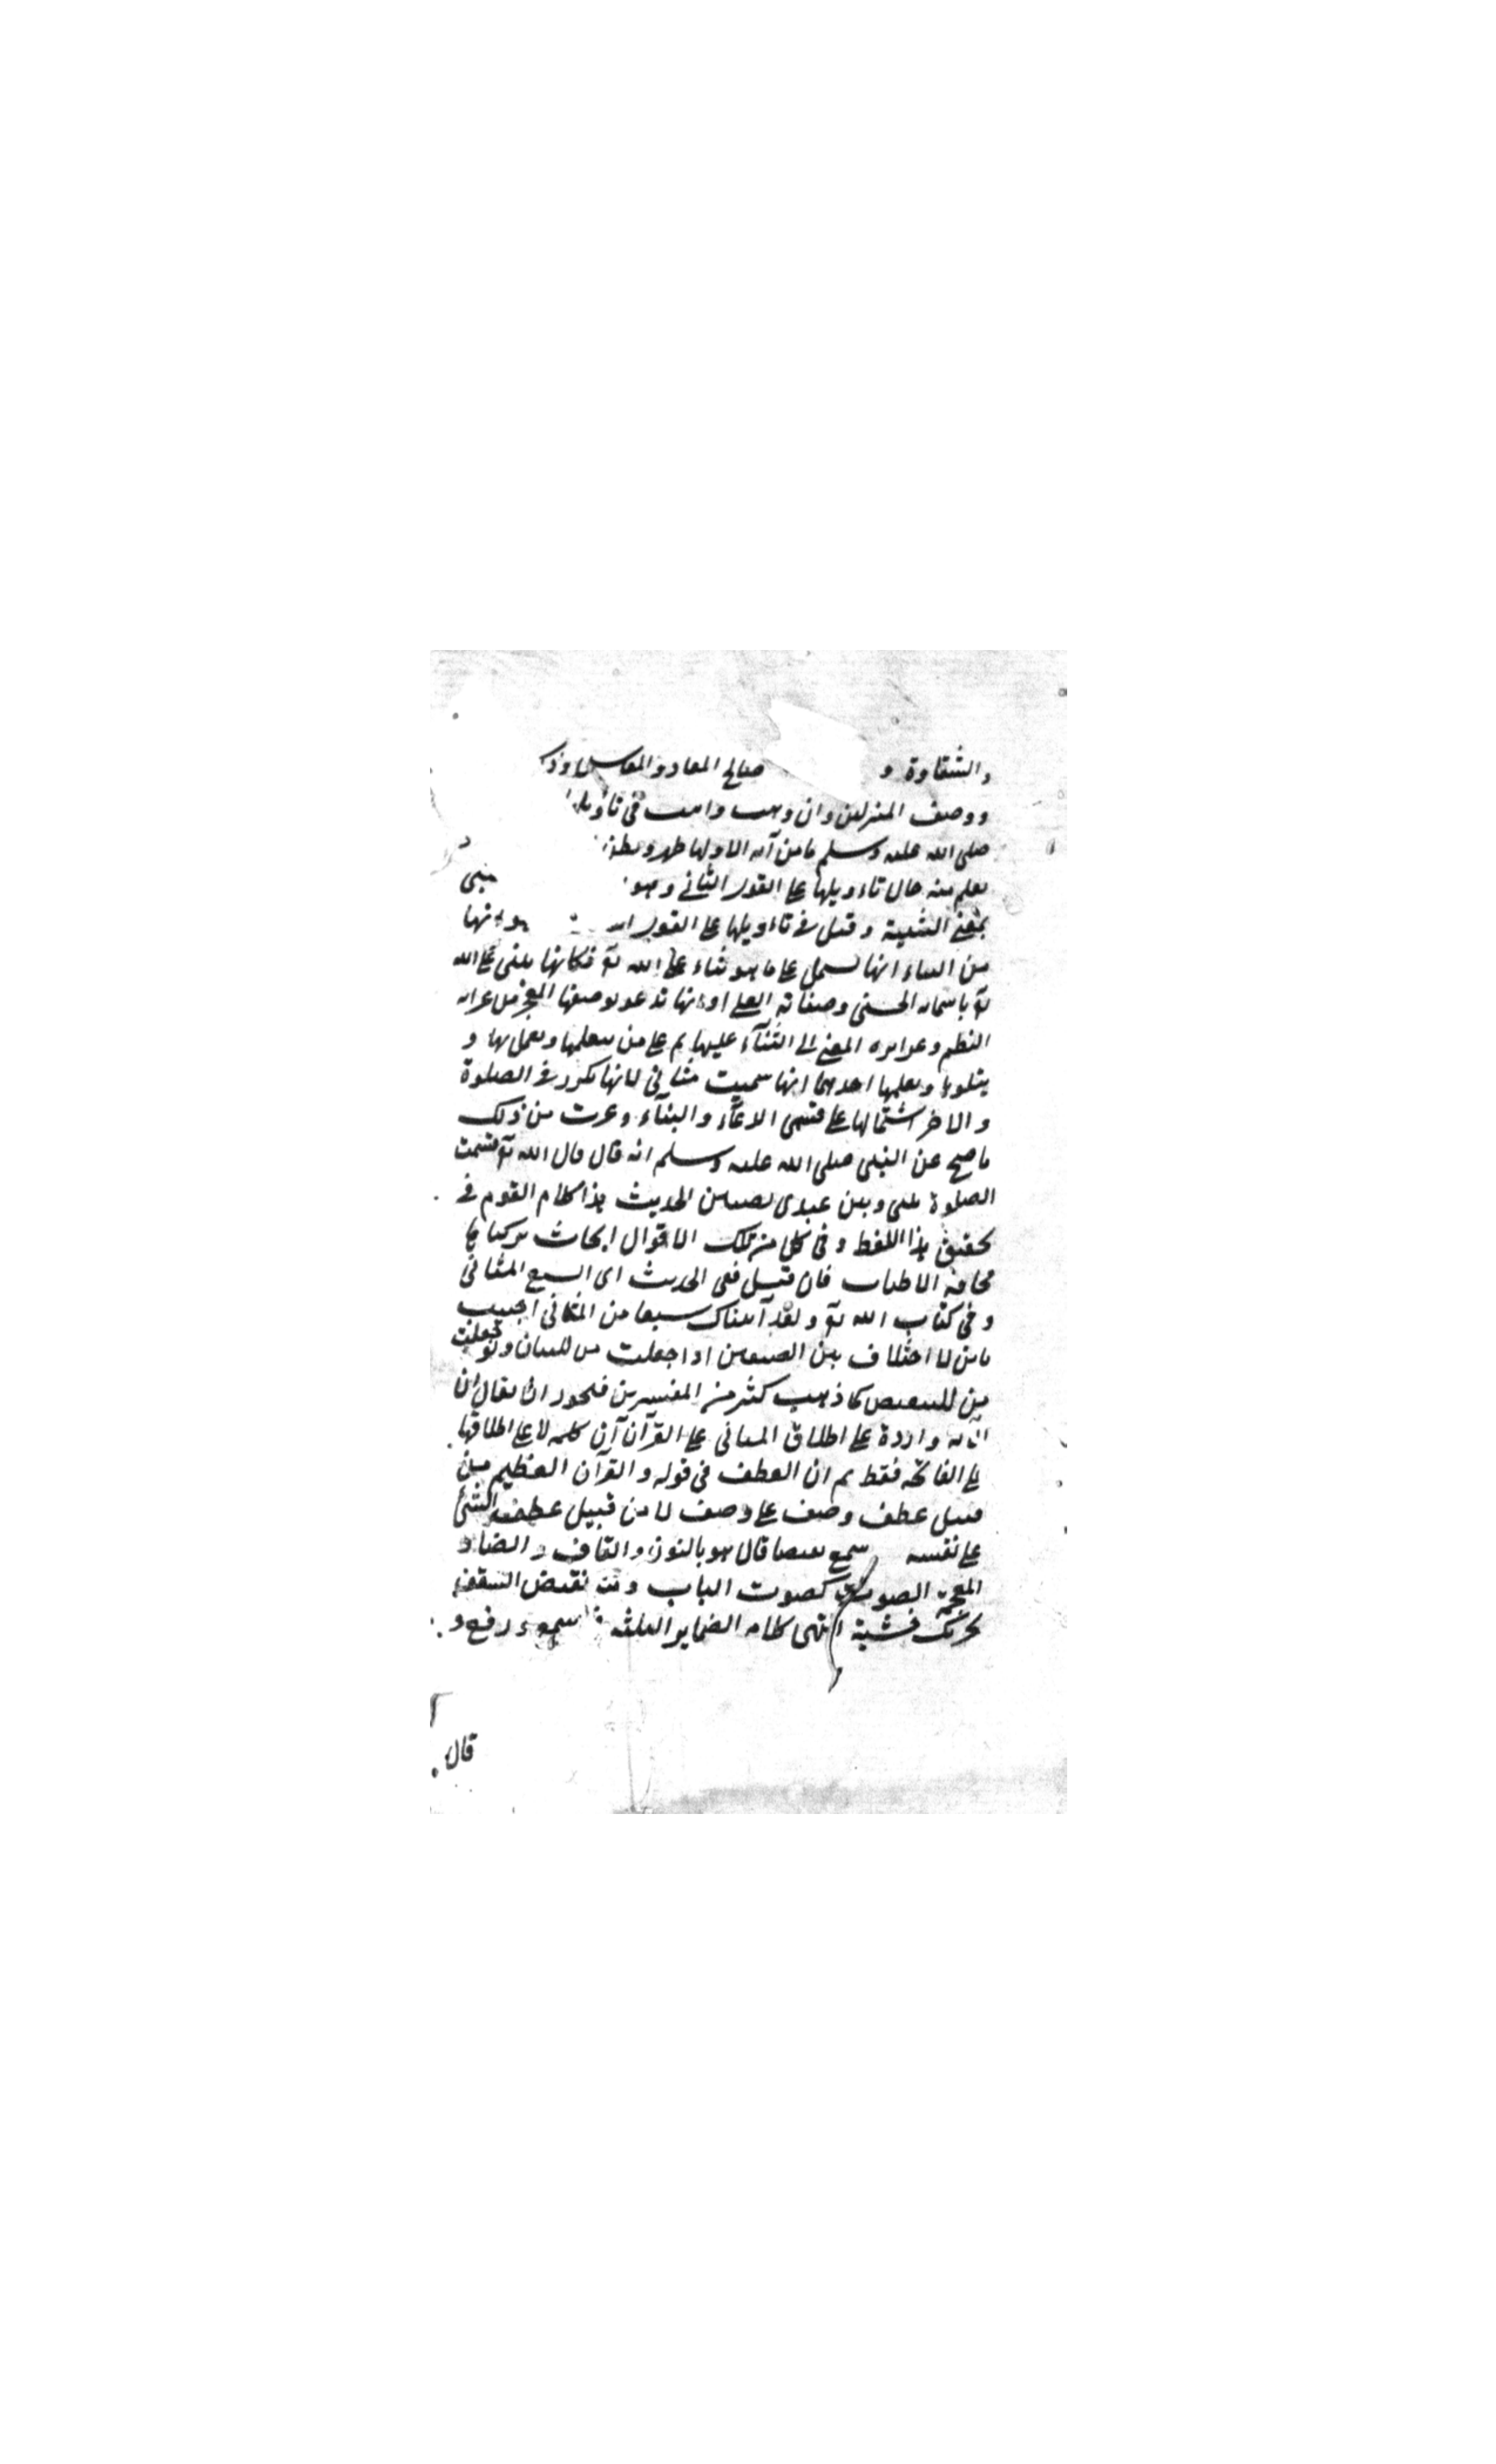 والشقاوة و صالح المعاد والمعاش وذكر
ووصف المنزلين وان ذهبت في تأويلها
صلى الله عليه وسلم ما من آية الا ولها ظهر وبطن
يعلم منه حال تاءويلها على القول الثاني وهو مبنى
بمعنى التثنية وقيل في تاءويلها على القول وانها
من الثناء انها تشتمل على ما هو ثناء على الله تع فكانها تثنى على الله
تع باسمائه الحسنى وصفاته العلى او انها تدعو بوصفها المعجز من غرابة
النظم وغزارة المعنى الى الثنآء عليها ثم على من يتعلمها ويعمل بها و
يتلوها ويعلمها احدهما انها سميت مثانى لانها تكرر في الصلوة
والاخر اشتمالها على قسمى الدعآء والثنآء وقرب من ذلك
ما صح عن النبى صلى الله عليه وسلم انه قال قال الله تع قسمت
الصلوة بينى وبين عبدى نصفين الحديث هذا كلام القوم في
تحقيق هذا اللفظ وفى كل من تلك الاقوال ابحاث تركناها
مخافة الاطناب فان قيل ففى الحديث اى السبع المثانى
وفى كتاب الله تع ولقد آتيناك سبعا من المثانى اجيب
بان لا اختلاف بين الصيغتين اذا جعلت من للبيان ولو جعلت
من للتبعيض كما ذهب كثير من المفسرين فيجوز ان يقال ان
الآية واردة على اطلاق المثانى على القرآن كله لا على اطلاقها
على الفاتحة فقط ثم ان العطف في قوله والقرآن العظيم من
قبيل عطف وصف على وصف لا من قبيل عطف الشئ
على نفسه سمع نقيضا قال هو بالنون والقاف والضاد
المعجمة الصوت كصوت الباب نقيض السقف
تحريك خشبة انتهى كلامه الضماير الثلثة سمع ورفع و
قال